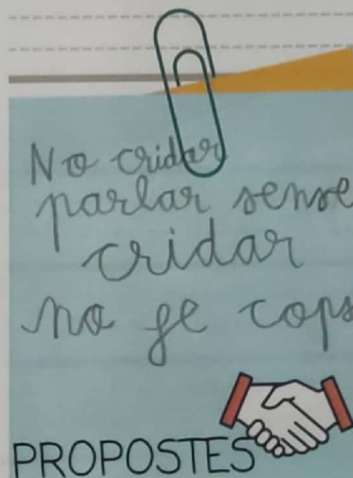 No cridar
parlar sense
cridar
no fe cops
PROPOSTES